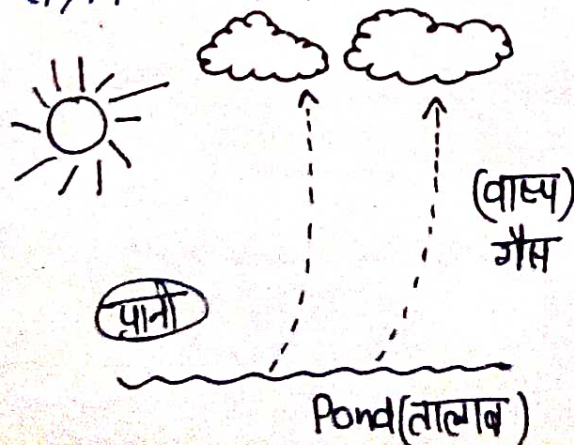 (वास्प)
गैस
पानी
Pond(तालाब)